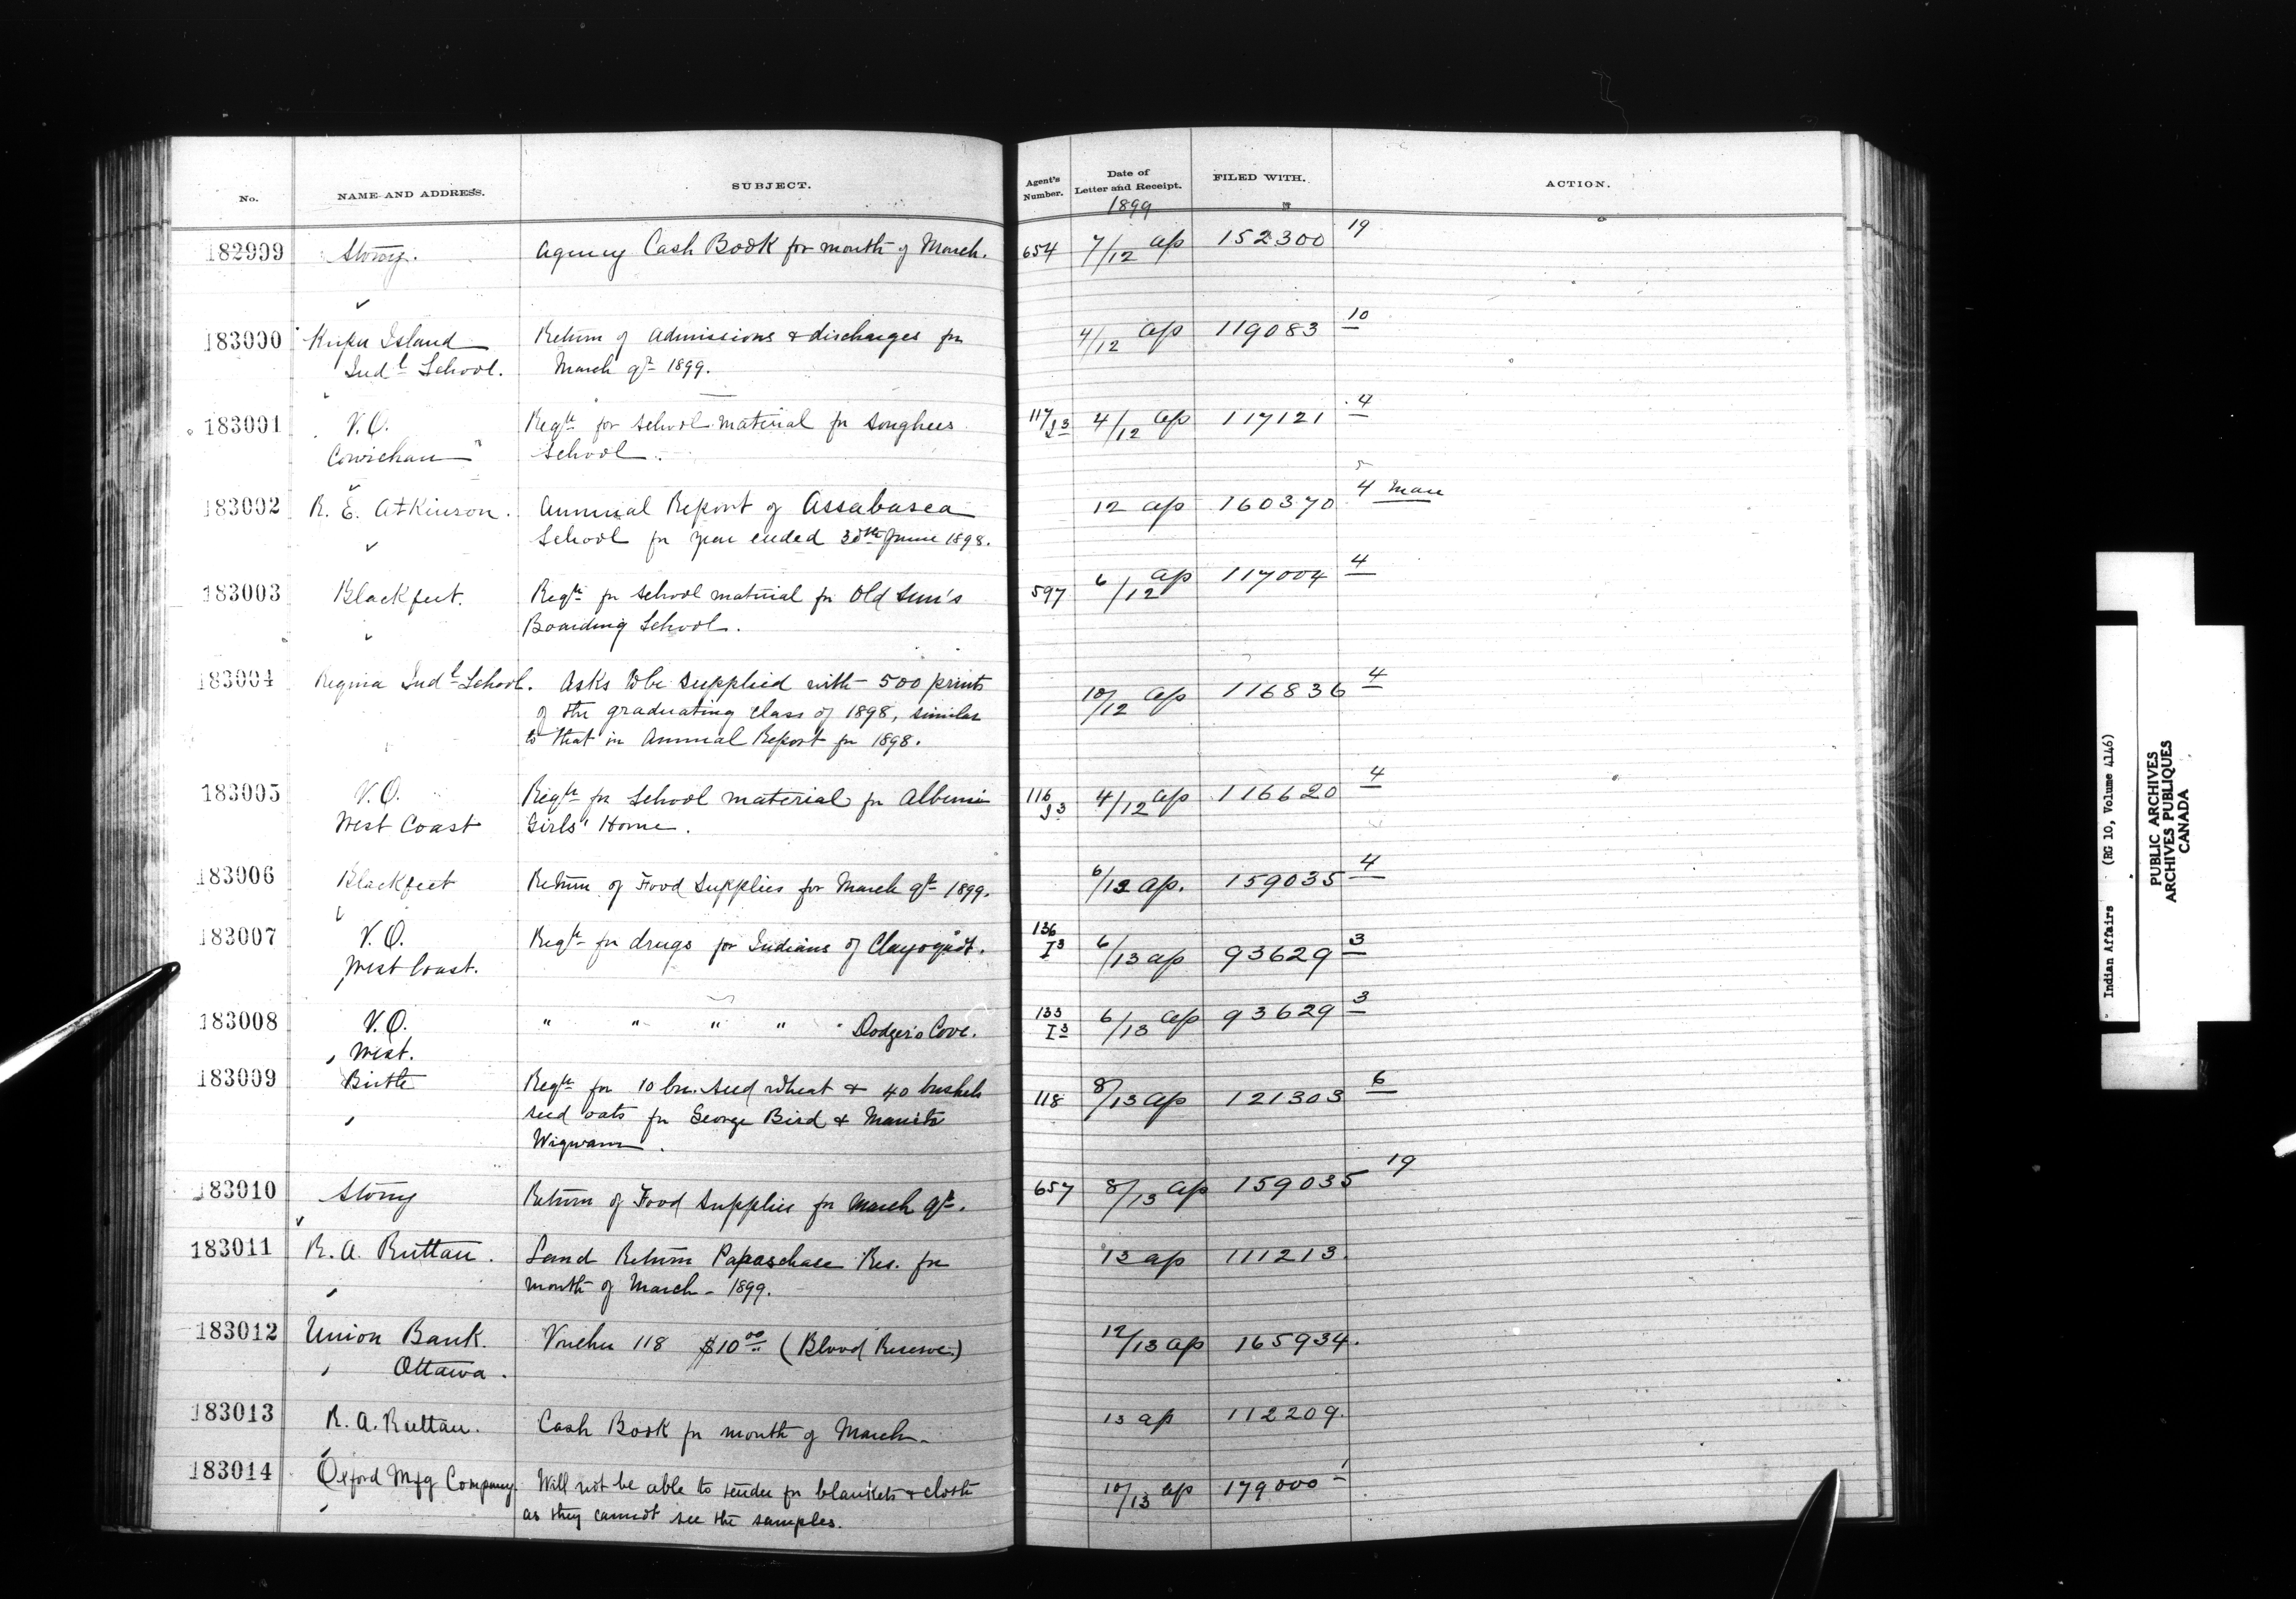 No. NAME AND ADDRESS. SUBJECT. Agent's Number. Date of Letter and Receipt. FILED WITH. ACTION.
1899
182999 Stony. Agency Cash Book for month of March. 654 7/12 ap 152300 19
183000 Kuper Island Return of admissions & discharges for 4/12 ap 119083 10
Indl School. March qr 1899.
183001 V.O. Reqn for school material for Songhees 117/I3 4/12 ap 117121 4
Cowichan School.
183002 R. E. Atkinson. Annual Report of Assabasca 12 ap 160370 4 Man
School for year ended 30th June 1898.
183003 Blackfeet. Reqn for school material for Old Sun's 597 6/12 ap 117004 4
Boarding School.
183004 Regina Indl School. Asks to be supplied with 500 prints 10/12 ap 116836 4
of the graduating class of 1898, similar
to that in Annual Report for 1898.
183005 V.O. Reqn for school material for Alberni 116 I3 4/12 ap 116620 4
West Coast Girls' Home.
183006 Blackfeet Return of Food Supplies for March qr 1899. 6/12 ap. 159035 4
183007 V.O. Reqn for drugs for Indians of Clayoquot. 136 I3 6/13 ap 93629 3
West Coast.
183008 V.O. " " " " " Dodger's Cove. 133 I3 6/13 ap 93629 3
West.
183009 Birtle Reqn for 10 bu. seed wheat & 40 bushels 118 8/13 ap 121303 6
seed oats for George Bird &
Wigwam.
183010 Stony Return of Food Supplies for March qr. 657 8/13 ap 159035 19
183011 R. A. Ruttan. Land Return Papaschase Res. for 13 ap 111213.
month of March - 1899.
183012 Union Bank. Voucher 118 $10 00 (Blood Reserve.) 12/13 ap 165934.
Ottawa.
183013 R. A. Ruttan. Cash Book for month of March- 13 ap 112209.
183014 Oxford Mfg Company. Will not be able to tender for blankets & cloth 10/13 ap 179000 1
as they cannot see the samples.
Indian Affairs (RG 10, Volume 4146)
PUBLIC ARCHIVES
ARCHIVES PUBLIQUES
CANADA